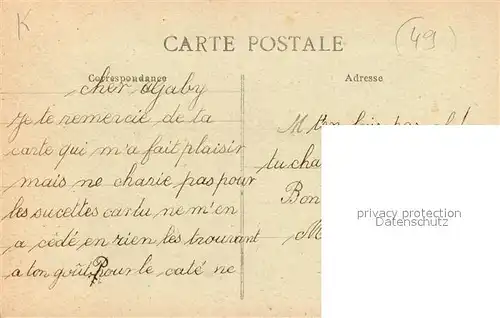 K
(49)
CARTE POSTALE
Correspondance
Adresse
cher Gaby
Je te remercie de ta
carte qui m'a fait plaisir
mais ne charie pas pour
les sucettes car tu ne m'en
a cédé en rien les trouvant
a ton goût. Pour le café ne
M t'en fais pas
tu cha
Bon
M
privacy protection
Datenschutz